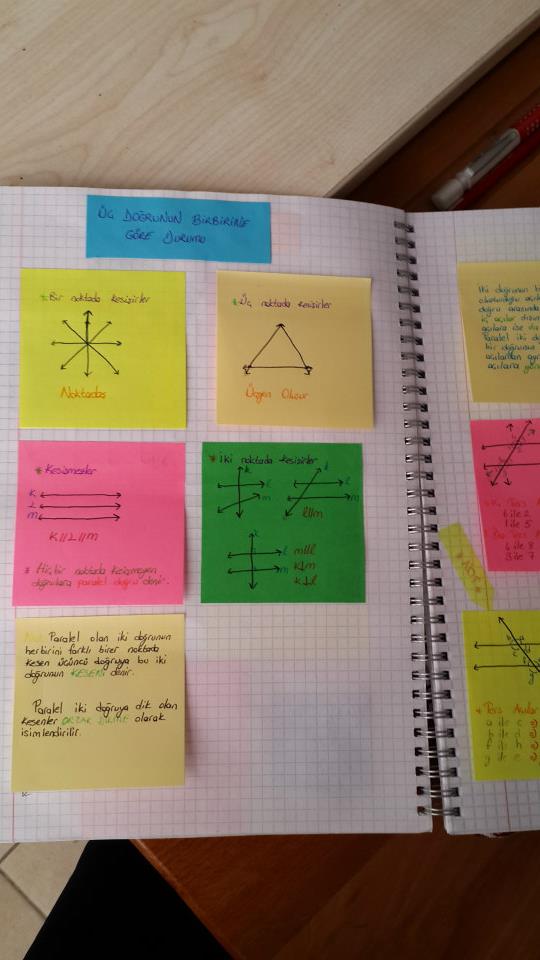 ÜÇ DOĞRUNUN BİRBİRİNE
GÖRE DURUMU
* Bir noktada kesişirler
Noktadaş
* Üç noktada kesişirler
Üçgen Oluşur
* Kesişmezler
K
L
m
K//L//m
* Hiç bir noktada kesişmeyen
doğrulara paralel doğru denir.
* İki noktada kesişirler
k
l
m
k
l
m
l//m
k
l
m
m//l
k⊥m
k⊥l
Not: Paralel olan iki doğrunun
herbirini farklı birer noktada
kesen üçüncü doğruya bu iki
doğrunun KESENİ denir.
Paralel iki doğruya dik olan
kesenler ORTAK DİKME olarak
isimlendirilir.
İki doğrunun
doğru arasında
iç açılar
açılara ise
Paralel iki
bir doğrunun
açılardan
açılara
Ters
6 ile 2
1 ile 5
6 ile 8
3 ile 7
* NOT *
* Ters Açılar
a ile c
b ile d
f ile h
g ile e